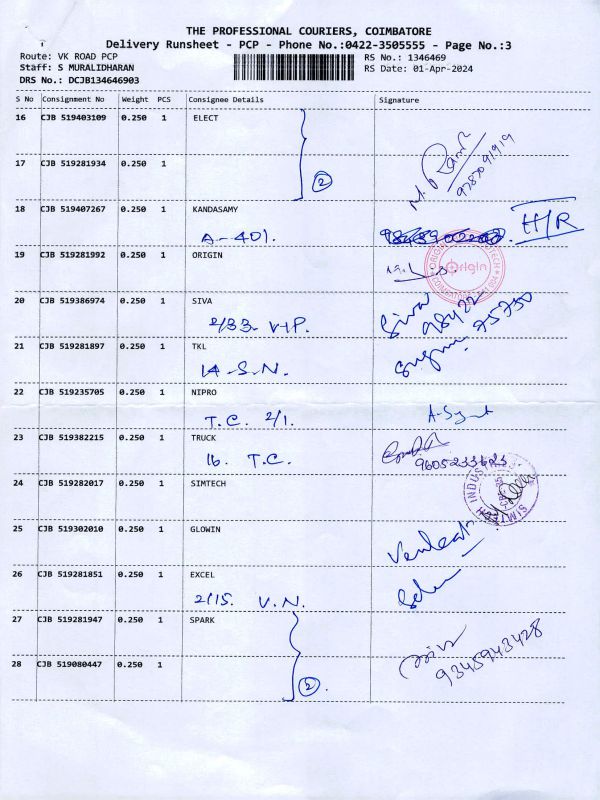 THE PROFESSIONAL COURIERS, COIMBATORE
Delivery Runsheet - PCP - Phone No.:0422-3505555 - Page No.:3
Route: VK ROAD PCP
Staff: S MURALIDHARAN
DRS No.: DCJB134646903
RS No.: 1346469
RS Date: 01-Apr-2024
S No Consignment No Weight PCS Consignee Details Signature
16 CJB 519403109 0.250 1 ELECT
2
M.
9787091919
17 CJB 519281934 0.250 1
18 CJB 519407267 0.250 1 KANDASAMY
A-401. H/R
19 CJB 519281992 0.250 1 ORIGIN
Origin
20 CJB 519386974 0.250 1 SIVA
2/33 V-I-P. Siva 98422 75750
21 CJB 519281897 0.250 1 TKL
1A-S.N.
22 CJB 519235705 0.250 1 NIPRO
T.C. 2/1.
23 CJB 519382215 0.250 1 TRUCK
16. T.C. 9605233623
24 CJB 519282017 0.250 1 SIMTECH
SIMTECH INDUSTRIES
25 CJB 519302010 0.250 1 GLOWIN
Venkat
26 CJB 519281851 0.250 1 EXCEL
2/15. V.N.
27 CJB 519281947 0.250 1 SPARK
9345943428
28 CJB 519080447 0.250 1
2